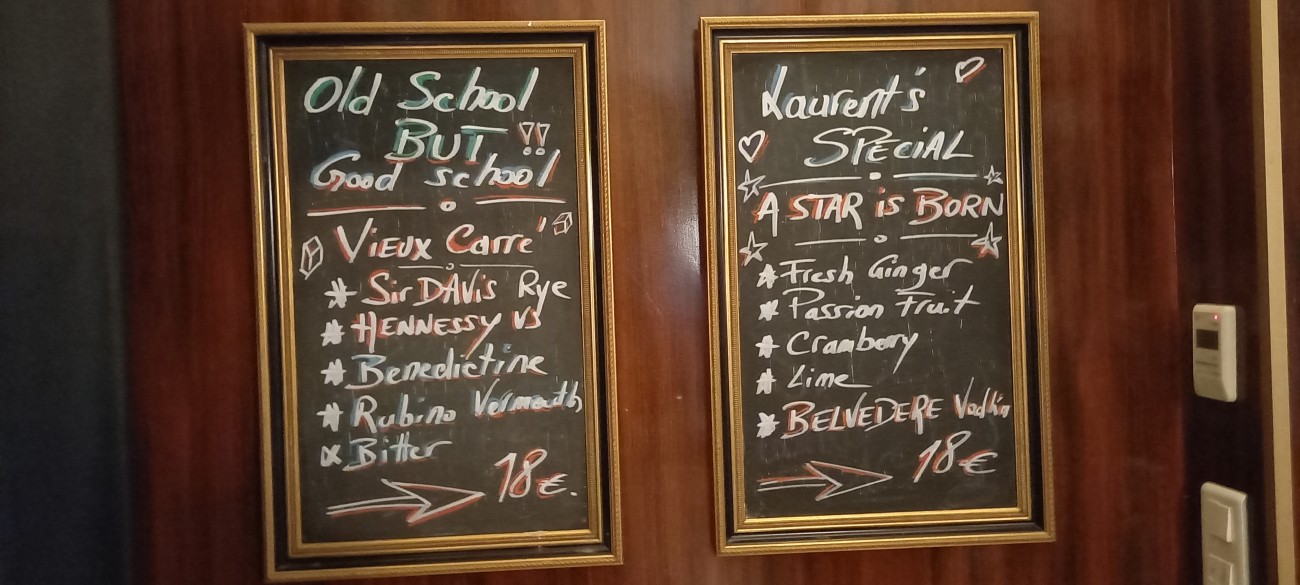 Old School
BUT !!
Good school
Vieux Carré
* Sir DAVis Rye
* HENNESSY VS
* Benedictine
* Rubino Vermouth
* Bitter
18€.
Laurent's
SPECiAL
A STAR is BORN
* Fresh Ginger
* Passion Fruit
* Cramberry
* Lime
* BELVEDERE Vodka
18€